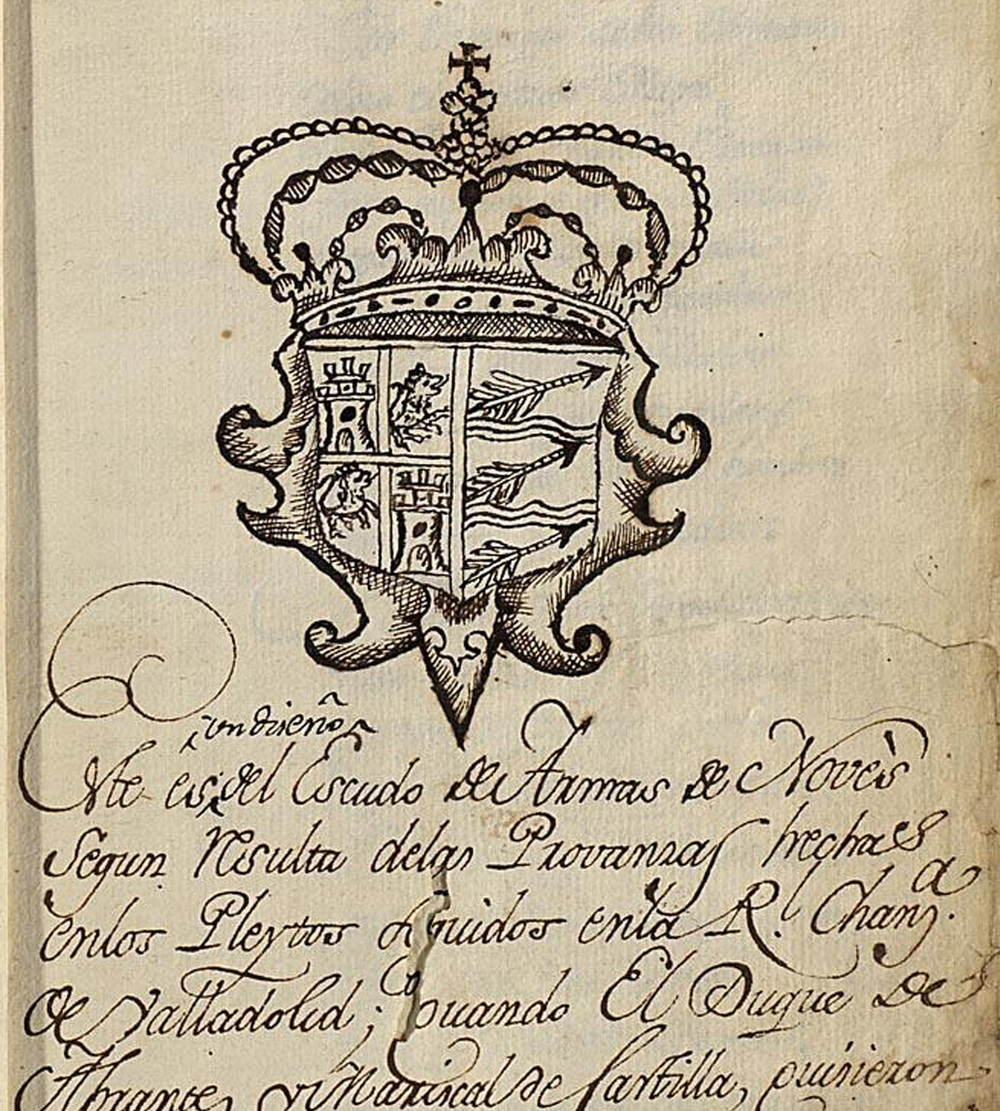 un diseño
Este es del Escudo de Armas de Novés
Segun resulta delas Provanzas hechas
enlos Pleytos seguidos enla Rl. Chanz.a
de Valladolid; quando El Duque de
Abrante, y Mariscal de Castilla, quisieron